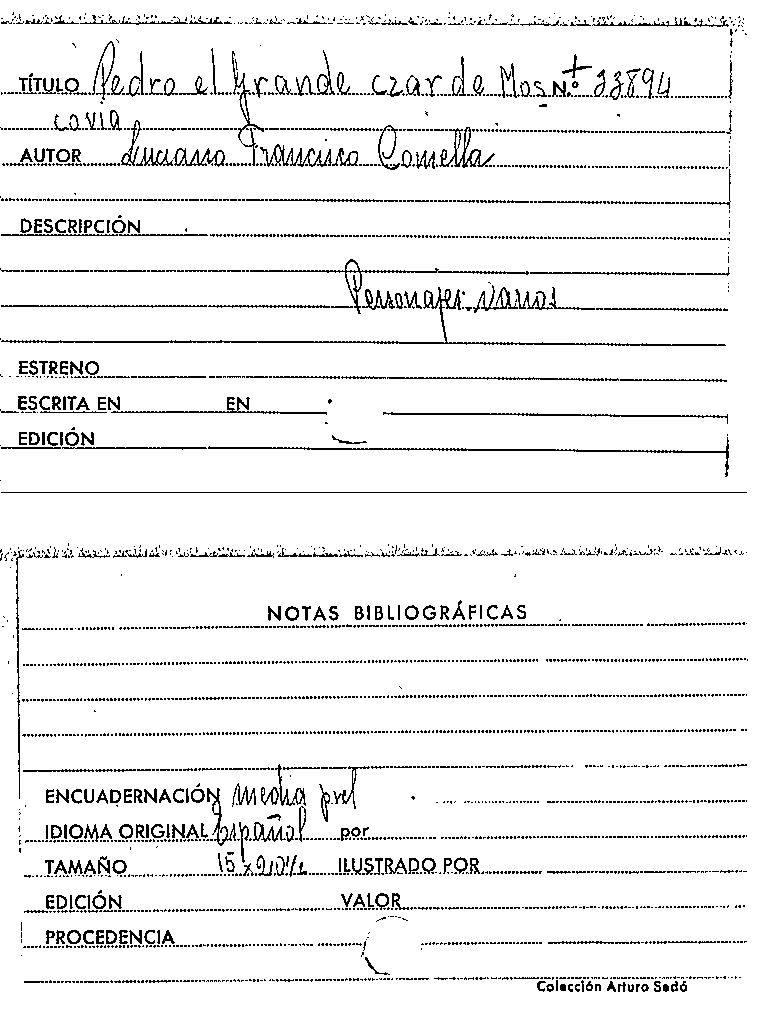 TÍTULO Pedro el Grande czar de Mos N.º 33894
covia
AUTOR Luciano Francisco Comella
DESCRIPCIÓN
Personajes. Varios
ESTRENO
ESCRITA EN EN
EDICIÓN
NOTAS BIBLIOGRÁFICAS
ENCUADERNACIÓN media piel
IDIOMA ORIGINAL Español por
TAMAÑO ILUSTRADO POR
EDICIÓN VALOR
PROCEDENCIA
Colección Arturo Sedó